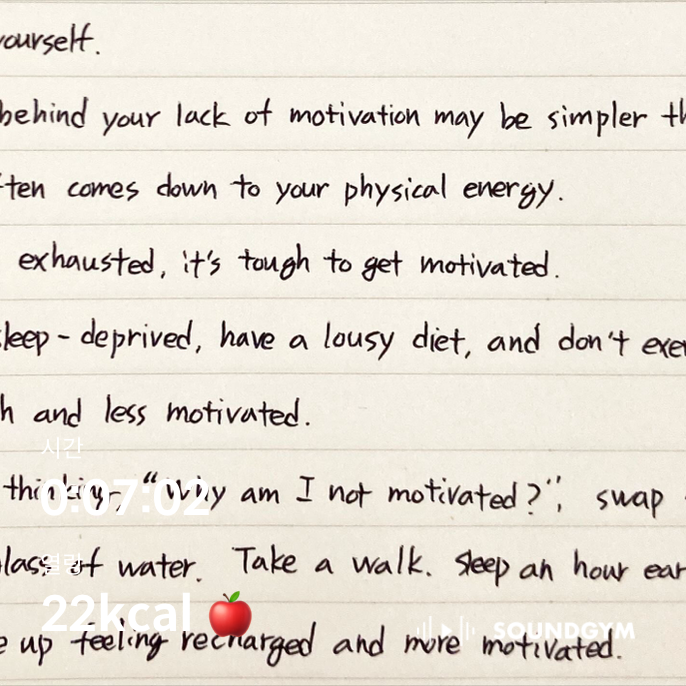 yourself.
behind your lack of motivation may be simpler th
ten comes down to your physical energy.
exhausted, it's tough to get motivated.
sleep-deprived, have a lousy diet, and don't exer
h and less motivated.
시간
thinking, “Why am I not motivated?”, swap
0:07:02
열량
lass of water. Take a walk. Sleep an hour ear
22kcal 🍎
SOUNDGYM
e up feeling recharged and more motivated.